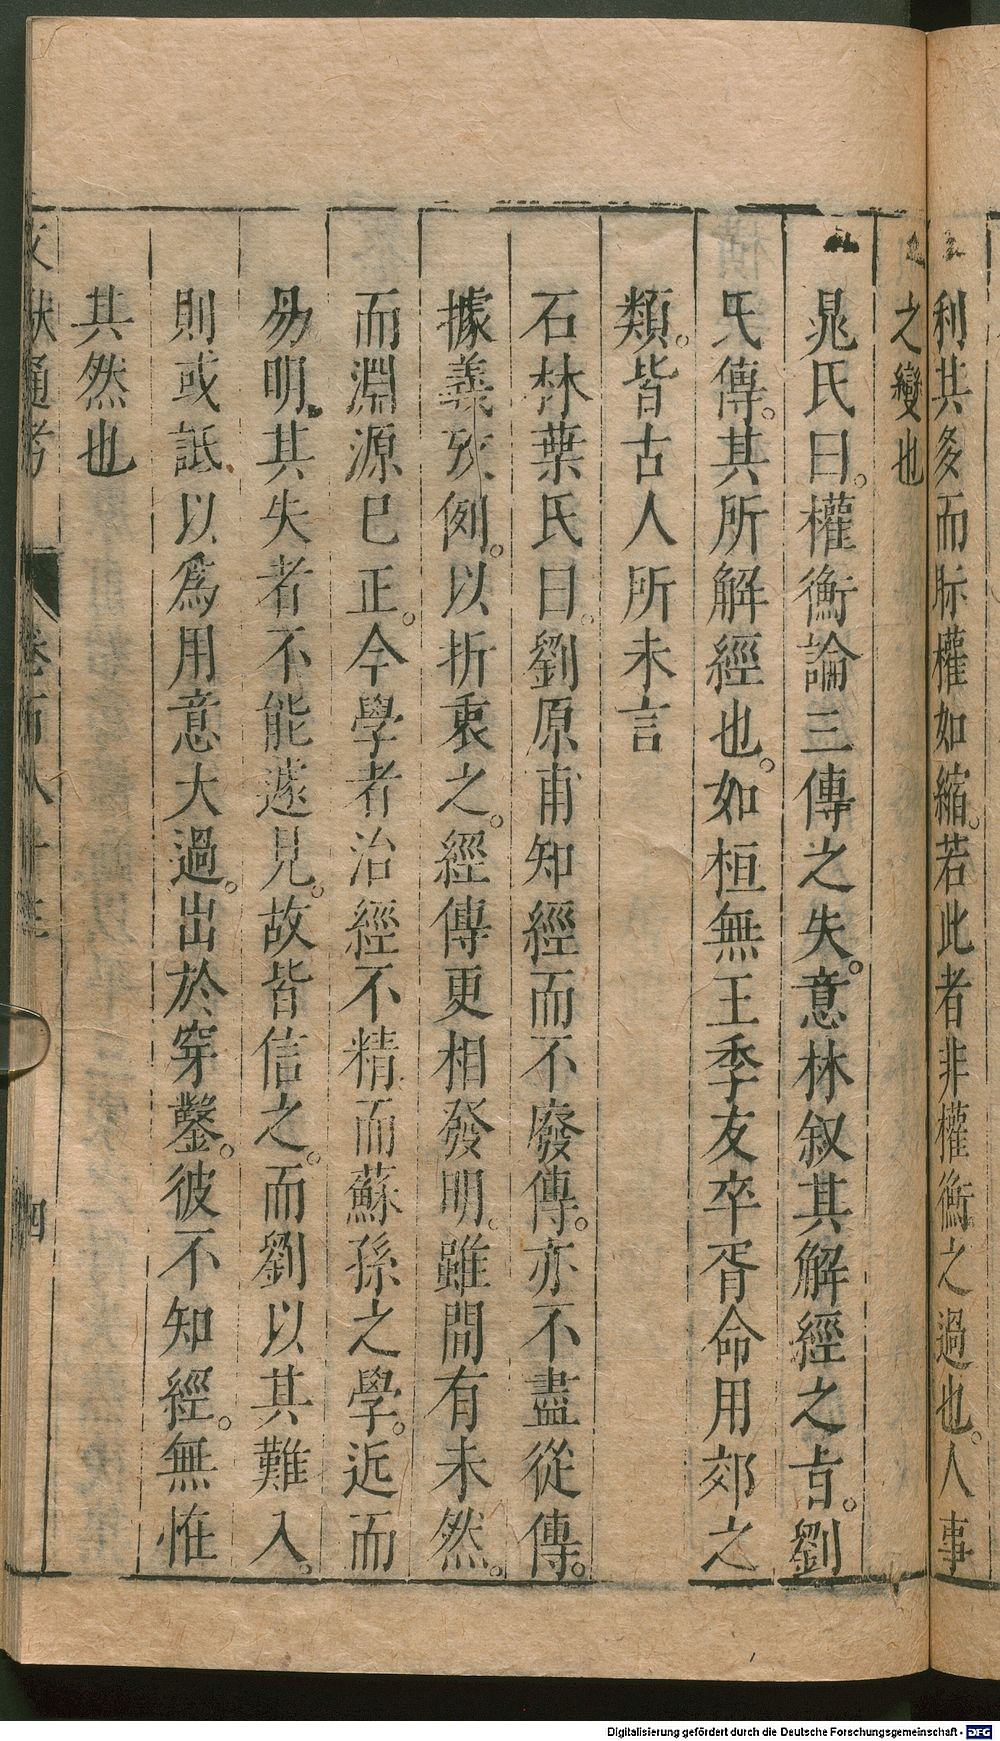 利共多而眎權如縮。若此者非權衡之過也。人事
之變也
晁氏曰。權衡論三傳之失。意林叙其解經之㫖。劉
氏傳。其所解經也。如桓無王季友卒胥命用郊之
類。皆古人所未言
石林葉氏曰。劉原甫知經而不廢傳。亦不盡從傳。
據義攷例。以折衷之。經傳更相發明。雖間有未然。
而淵源已正。今學者治經不精而蘇孫之學。近而
易明。其失者不能遽見。故皆信之。而劉以其難入。
則或詆以爲用意大過。出於穿鑿。彼不知經。無惟
其然也
文獻通考 卷百八十三 四
Digitalisierung gefördert durch die Deutsche Forschungsgemeinschaft - DFG